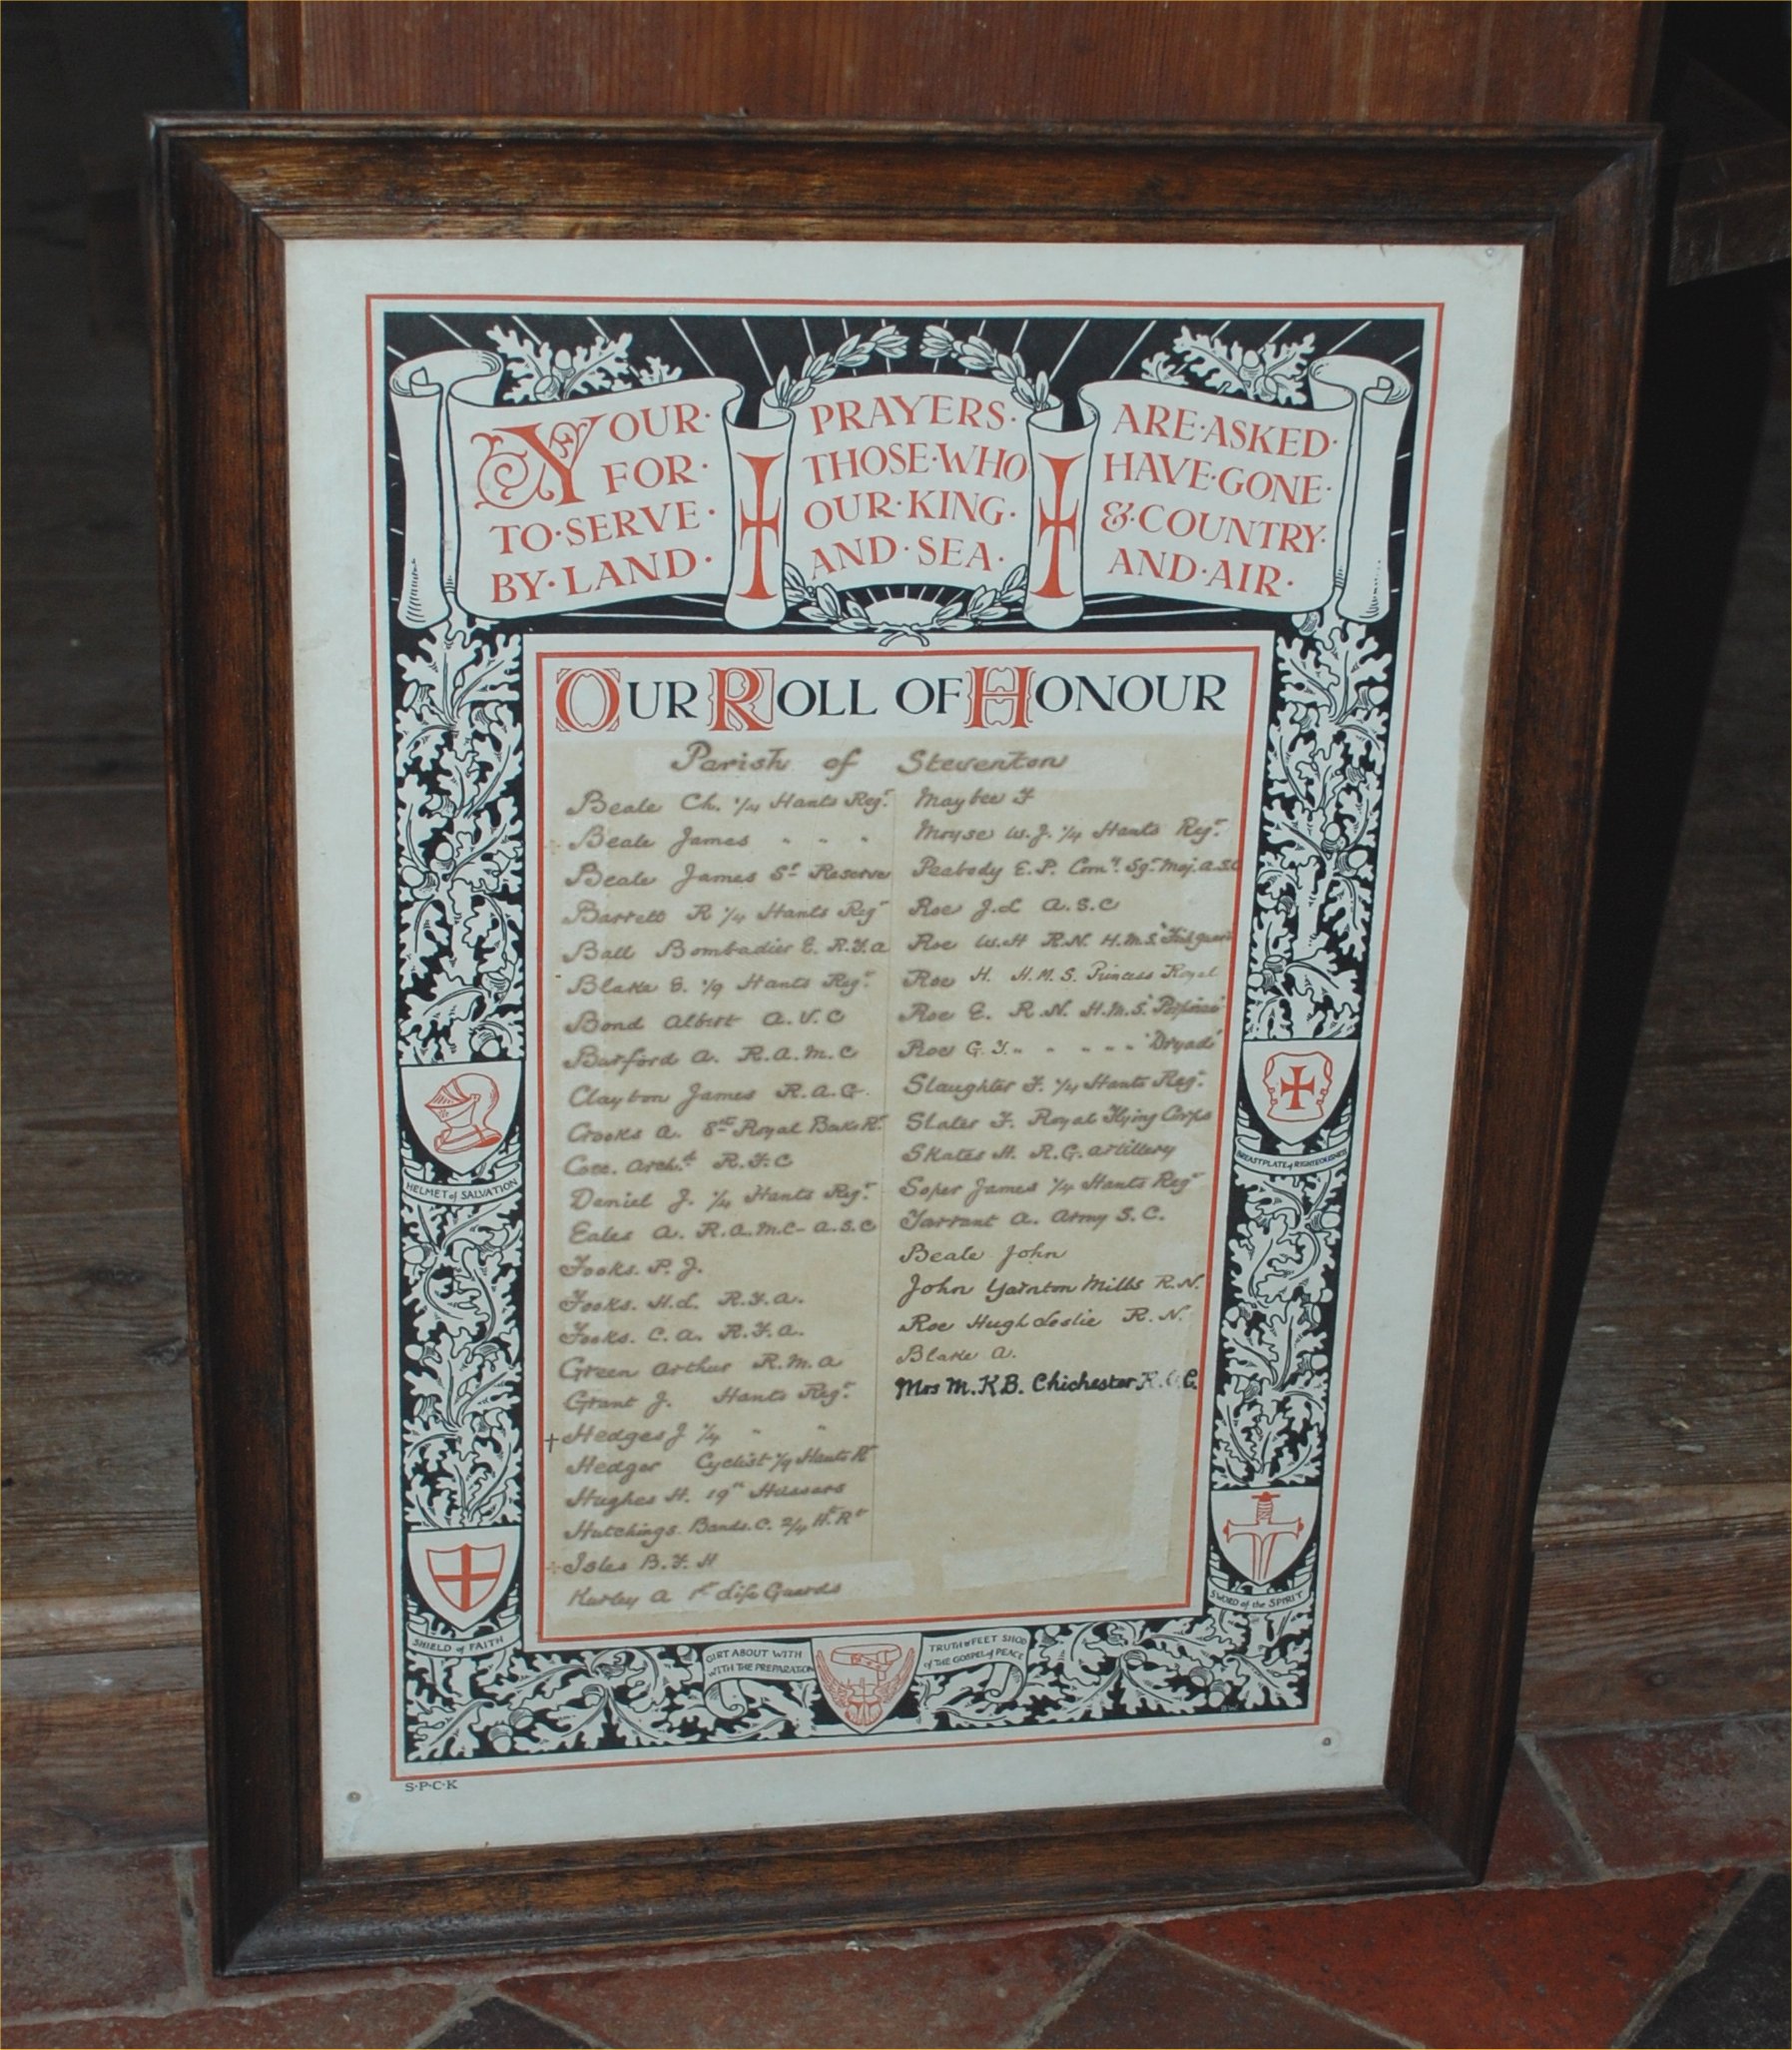 YOUR · PRAYERS · ARE · ASKED ·
FOR · THOSE · WHO HAVE · GONE ·
TO · SERVE · OUR · KING · & · COUNTRY ·
BY · LAND · AND · SEA · AND · AIR ·
OUR ROLL OF HONOUR
Parish of Steventon
Beale Ch. 1/4 Hants Regt
Beale James " " "
Beale James St Reserve
Barrett R 1/4 Hants Regt
Ball Bombadier E. R.F.A
Blake E. 1/9 Hants Regt
Bond Albert A.V.C
Barford A. R.A.M.C
Clayton James R.A.G.
Crooks A. 8th Royal Berks Rt
Archd R.F.C
Daniel J. 1/4 Hants Regt
Eales A. R.A.M.C - A.S.C
Fooks. P. J.
Fooks. H.L. R.F.A.
Fooks. C.A. R.F.A.
Green Arthur R.M.A
Grant J. Hants Regt
+ Hedges J 1/4 " "
Hedger Cyclist 1/9 Hants Rt
Hughes H. 19th Hussars
Hutchings Bands. C. 2/4 H. Rt
Isles B.F. H
Hurley A 1st Life Guards
Maybee F
Moyse W.J. 1/4 Hants Regt
Peabody E.P. Comy Sgt Maj. A.S.C
Roe J.L A.S.C
Roe W.H R.N. H.M.S.
Roe H. H.M.S. Princess Royal
Roe E. R.N. H.M.S.
Roe G.F. " " " " " "Dryad"
Slaughter F. 1/4 Hants Regt
Slater F. Royal Flying Corps
Skates H. R.G. Artillery
Soper James 1/4 Hants Regt
Tarrant A. Army S.C.
Beale John
John Yarnton Mills R.N.
Roe Hugh Leslie R.N.
Blake A.
Mrs M.K.B. Chichester
HELMET of SALVATION
BREASTPLATE of RIGHTEOUSNESS
SHIELD of FAITH
SWORD of the SPIRIT
GIRT ABOUT WITH TRUTH & FEET SHOD
WITH THE PREPARATION of THE GOSPEL of PEACE
S·P·C·K